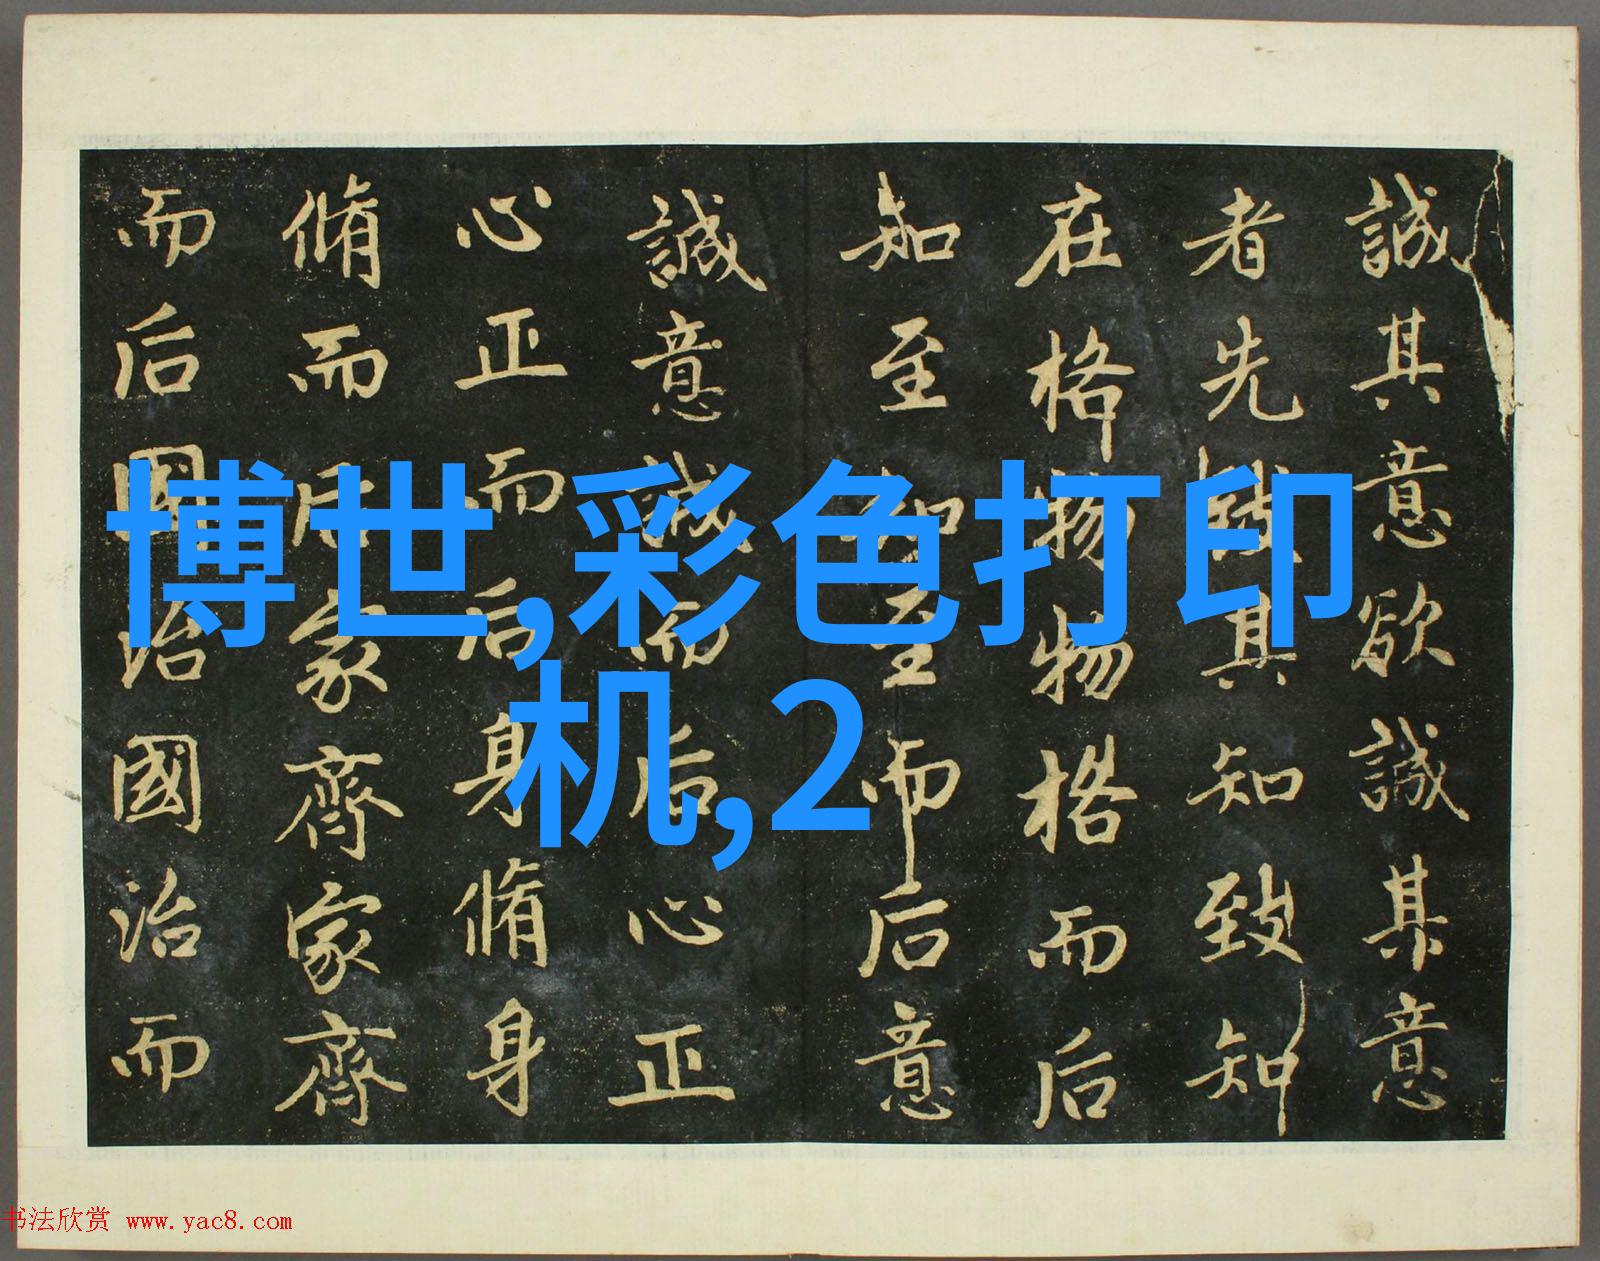 誠其意欲誠其意
者先致其知致知
在格物物格而后
知至知至而后意
誠意誠而后心正
心正而后身脩身
脩而后家齊家齊
而后國治國治而
博世,彩色打印
机,2
书法欣赏 www.yac8.com